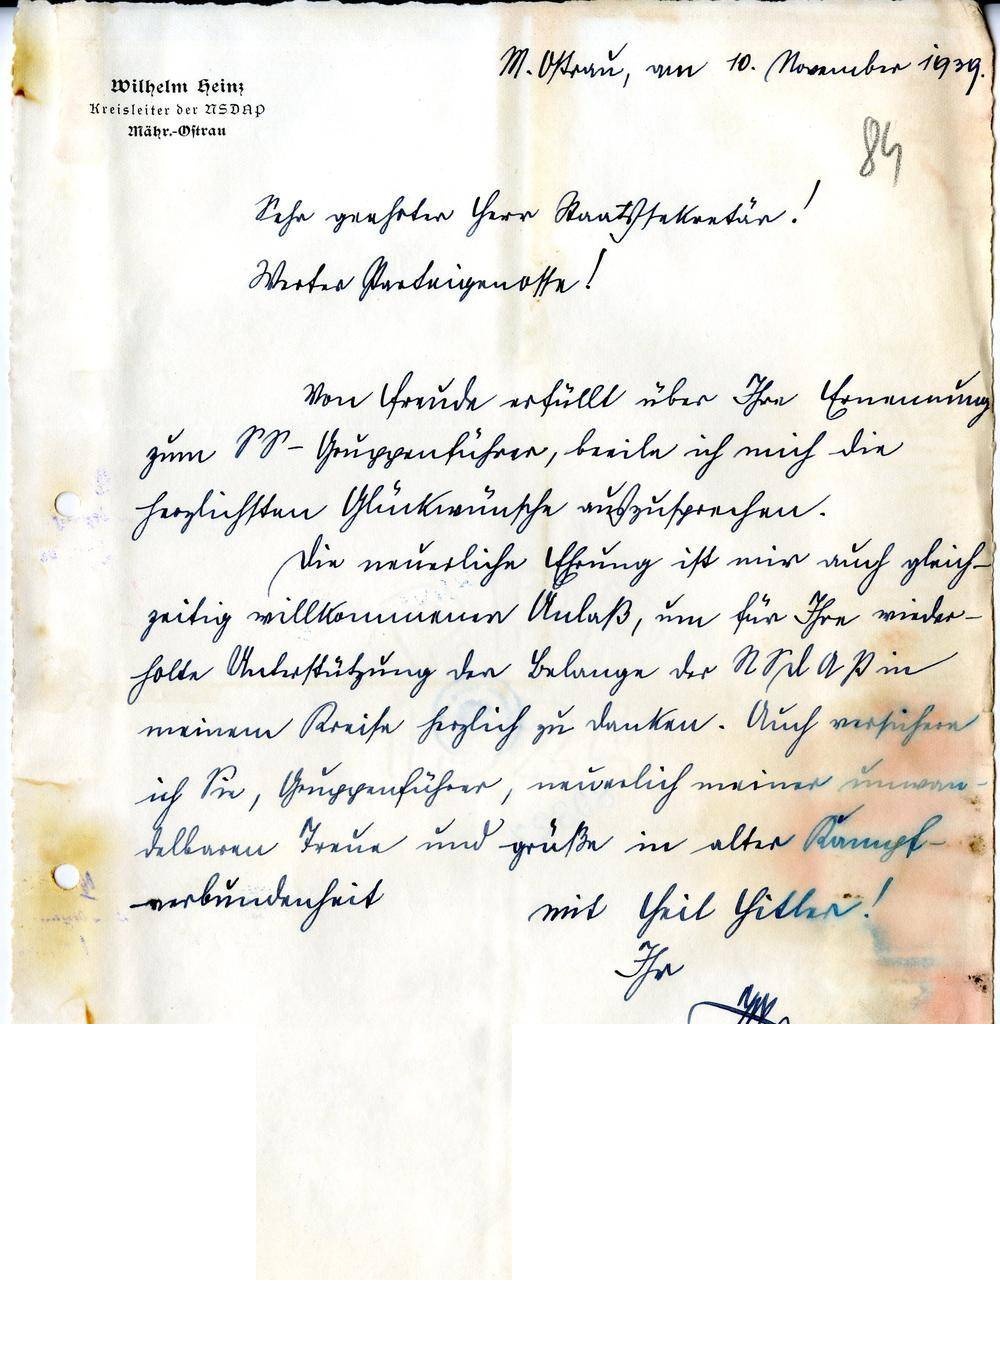 Wilhelm Heinz
Kreisleiter der NSDAP
Mähr.-Ostrau
M. Ostrau, am 10. November 1939.
84
Sehr geehrter Herr Staatssekretär!
Werter Parteigenosse!
Von Freude erfüllt über Ihre Ernennung
zum SS-Gruppenführer, beeile ich mich die
herzlichsten Glückwünsche auszusprechen.
Die neuerliche Ehrung ist mir auch gleich-
zeitig willkommener Anlaß, um für Ihre wieder-
holte Unterstützung der Belange der NSdAP in
meinem Kreise herzlich zu danken. Auch versichere
ich Sie, Gruppenführer, neuerlich meiner unwan-
delbaren Treue und grüße in alter Kampf-
verbundenheit
mit Heil Hitler!
Ihr